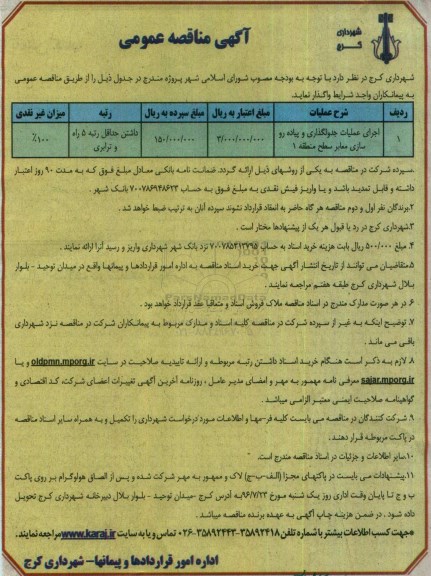 شهرداری کرج
آگهی مناقصه عمومی
شهرداری کرج در نظر دارد با توجه به بودجه مصوب شورای اسلامی شهر پروژه مندرج در جدول ذیل را از طریق مناقصه عمومی
به پیمانکاران واجد شرایط واگذار نماید.
ردیف شرح عملیات مبلغ اعتبار به ریال مبلغ سپرده به ریال رتبه میزان غیر نقدی
۱ اجرای عملیات جدولگذاری و پیاده رو سازی معابر سطح منطقه ۱ ۳/۰۰۰/۰۰۰/۰۰۰ ۱۵۰/۰۰۰/۰۰۰ داشتن حداقل رتبه ۵ راه و ترابری ٪۱۰۰
۱.سپرده شرکت در مناقصه به یکی از روشهای ذیل ارائه گردد. ضمانت نامه بانکی معادل مبلغ فوق که به مدت ۹۰ روز اعتبار
داشته و قابل تمدید باشد و یا واریز فیش نقدی به مبلغ فوق به حساب ۷۰۰۷۸۶۹۴۸۶۲۳ بانک شهر .
۲.برندگان نفر اول و دوم مناقصه هر گاه حاضر به انعقاد قرارداد نشوند سپرده آنان به ترتیب ضبط خواهد شد .
۳.شهرداری کرج در رد یا قبول هر یک از پیشنهادها مختار است .
۴. مبلغ ۵۰۰/۰۰۰ ریال بابت هزینه خرید اسناد به حساب ۷۰۰۷۸۵۴۱۳۷۹۵ نزد بانک شهر شهرداری واریز و رسید آنرا ارائه نمایند .
۵.متقاضیان می توانند از تاریخ انتشار آگهی جهت خرید اسناد مناقصه به اداره امور قراردادها و پیمانها واقع در میدان توحید - بلوار
بلال شهرداری کرج طبقه هفتم مراجعه نمایند .
۶. در هر صورت مدارک مندرج در اسناد مناقصه ملاک فروش اسناد و متعاقبا عقد قرارداد خواهد بود .
۷. توضیح اینکه به غیر از سپرده شرکت در مناقصه کلیه اسناد و مدارک مربوط به پیمانکاران شرکت در مناقصه نزد شهرداری
باقی می ماند .
۸. لازم به ذکر است هنگام خرید اسناد داشتن رتبه مربوطه و ارائه تاییدیه صلاحیت در سایت oldpmn.mporg.ir و یا
sajar.mporg.ir معرفی نامه ممهور به مهر و امضای مدیر عامل ، روزنامه آخرین آگهی تغییرات اعضای شرکت، کد اقتصادی و
گواهینامه صلاحیت ایمنی معتبر الزامی میباشد .
۹. شرکت کنندگان در مناقصه می بایست کلیه فرمها و اطلاعات مورد درخواست شهرداری را تکمیل و به همراه سایر اسناد مناقصه
در پاکت مربوطه قرار دهند .
۱۰.سایر اطلاعات و جزئیات در اسناد مناقصه مندرج است.
۱۱.پیشنهادات می بایست در پاکتهای مجزا (الف-ب-ج) لاک و ممهور به مهر شرکت شده و پس از الصاق هولوگرام بر روی پاکت
ب و ج تا پایان وقت اداری روز یک شنبه مورخ ۹۶/۷/۲۳ به آدرس کرج -میدان توحید - بلوار بلال دبیرخانه شهرداری کرج تحویل
داده شود . در ضمن هزینه چاپ آگهی به عهده برنده مناقصه میباشد .
*جهت کسب اطلاعات بیشتر با شماره تلفن ۳۵۸۹۲۴۱۸-۳۵۸۹۲۴۴۳-۰۲۶ تماس و یا به سایت www.karaj.ir مراجعه نمایند.
اداره امور قراردادها و پیمانها- شهرداری کرج